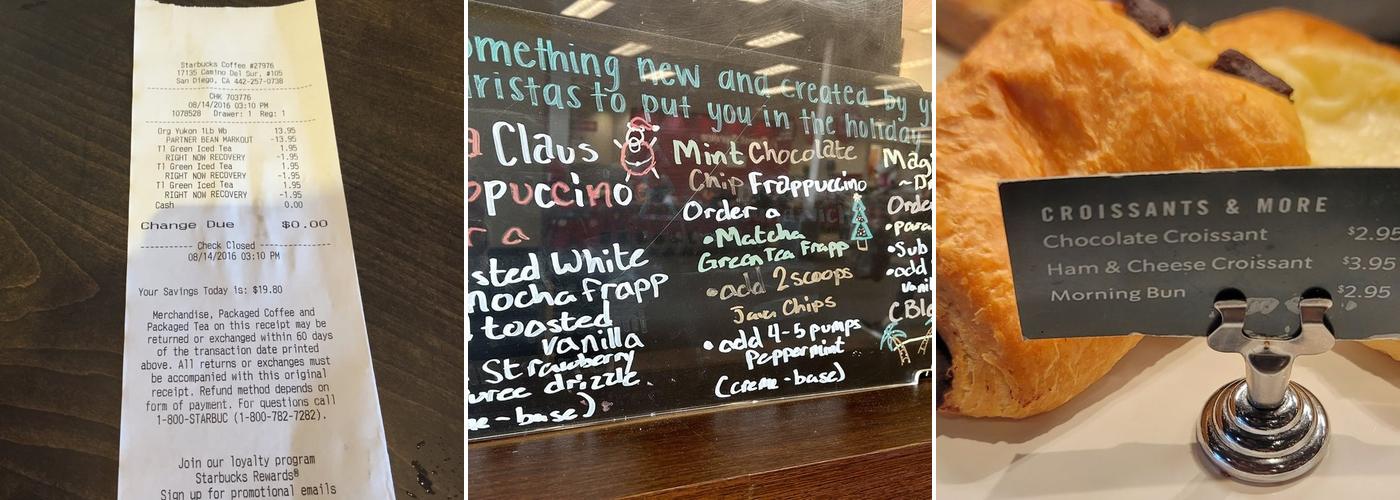 Starbucks Coffee #27976
17135 Camino Del Sur, #105
San Diego, CA 442-257-0738
CHK 703776
08/14/2016 03:10 PM
1078528 Drawer: 1 Reg: 1
Org Yukon 1Lb Wb 13.95
PARTNER BEAN MARKOUT -13.95
T1 Green Iced Tea 1.95
RIGHT NOW RECOVERY -1.95
T1 Green Iced Tea 1.95
RIGHT NOW RECOVERY -1.95
T1 Green Iced Tea 1.95
RIGHT NOW RECOVERY -1.95
Cash 0.00
Change Due $0.00
Check Closed
08/14/2016 03:10 PM
Your Savings Today is: $19.80
Merchandise, Packaged Coffee and
Packaged Tea on this receipt may be
returned or exchanged within 60 days
of the transaction date printed
above. All returns or exchanges must
be accompanied with this original
receipt. Refund method depends on
form of payment. For questions call
1-800-STARBUC (1-800-782-7282).
Join our loyalty program
Starbucks Rewards®
Sign up for promotional emails
omething new and created by y
ristas to put you in the holiday
a Claus
ppuccino
r a
sted White
Mocha Frapp
toasted
vanilla
Strawberry
uree drizzle.
me-base)
Mint Chocolate
Chip Frappuccino
Order a
•Matcha
Green Tea Frapp
•add 2 scoops
Java Chips
•add 4-5 pumps
Peppermint
(creme-base)
Mag
~Dr
Orde
•para
•Sub
•add
vani
CROISSANTS & MORE
Chocolate Croissant $2.95
Ham & Cheese Croissant $3.95
Morning Bun $2.95